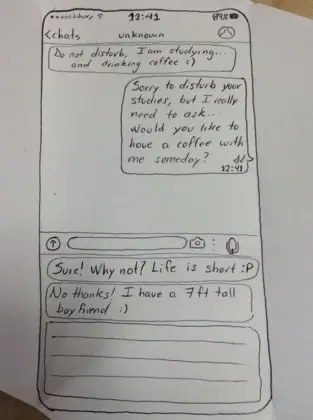 12:41
89%
<chats
unknown
Do not disturb, I am studying...
and drinking coffee :)
Sorry to disturb your
studies, but I really
need to ask..
Would you like to
have a coffee with
me someday?
12:41
Sure! Why not? Life is short :P
No thanks! I have a 7ft tall
boyfriend :)